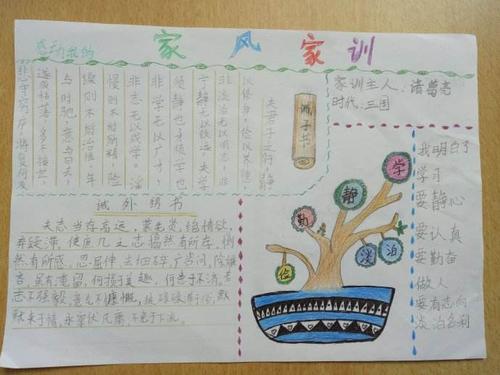 感动我的
家风家训
家训主人：诸葛亮
时代：三国
诫子书
夫君子之行，静
以修身，俭以养德，
非淡泊无以明志，非
宁静无以致远。夫学
须静也，才须学也，
非学无以广才，
非志无以成学。淫
慢则不能励精，险
躁则不能治性。年
与时驰，意与日去，
遂成枯落，多不接世，
悲守穷庐，将复何及
诫外甥书
夫志当存高远，慕先贤，绝情欲，
弃疑滞，使庶几之志揭然有所存，恻
然有所感。忍屈伸，去细碎，广咨问，除嫌
吝，虽有淹留，何损于美趣，何患于不济。若
志不强毅，意气不慷慨，徒碌碌滞于俗，默
默束于情，永窜伏凡庸，不免于下流。
学
静
勤
淡
泊
俭
我明白了
学习
要静心
要认真
要勤奋
做人
要有志向
淡泊名利